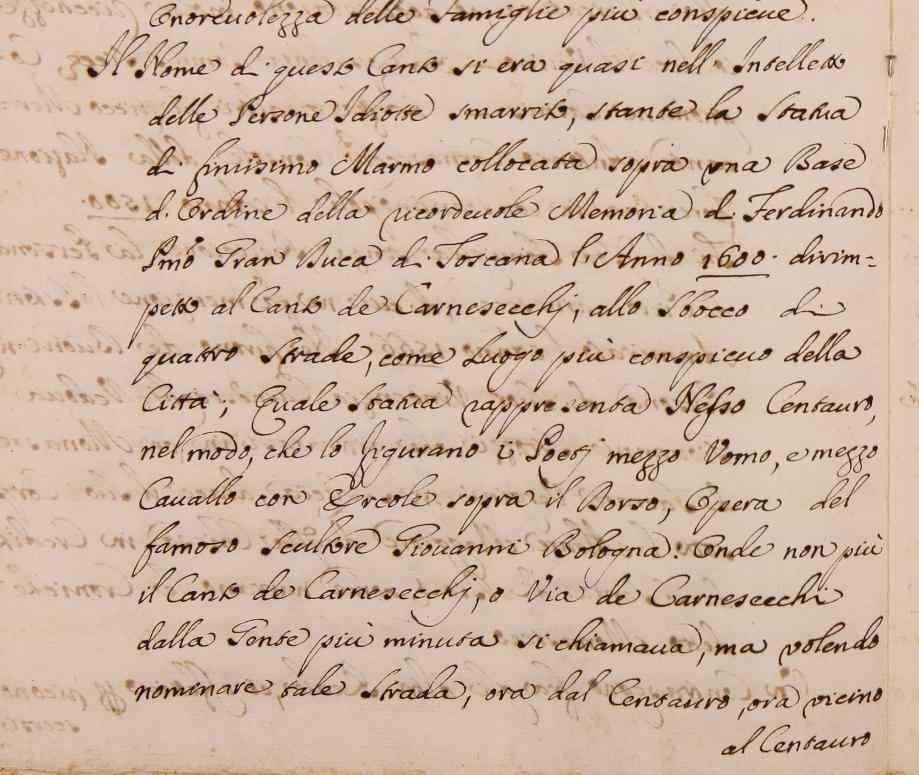 Onorevolezza delle Famiglie più conspicue.
Il Nome di questo Canto si era quasi nell' Intelletto
delle Persone Idiotte smarrito, stante la Statua
di finissimo Marmo collocata sopra una Base
d'Ordine della ricordevole Memoria di Ferdinando
Pmo Gran Duca di Toscana l'Anno 1600. dirim=
petto al Canto de Carnesecchj, allo Sbocco di
quattro Strade, come Luogo più conspicuo della
Città, Quale Statua rappresenta Nesso Centauro,
nel modo, che lo figurano i Poetj mezzo Uomo, e mezzo
Cavallo con Ercole sopra il Dorso, Opera del
famoso Scultore Giovanni Bologna. Onde non più
il Canto de Carnesecchj, o Via de Carnesecchi
dalla Gente più minuta si chiamava, ma volendo
nominare tale Strada, ora dal Centauro, ora vicino
al Centauro